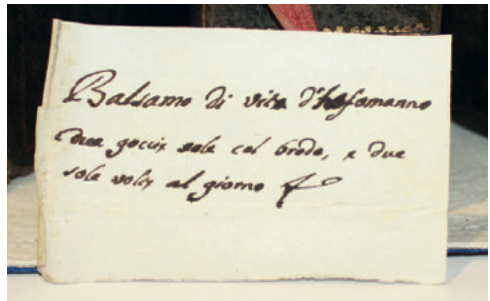 Balsamo di vita d'Hofomanno
due goccie sole col brodo, e due
sole volte al giorno